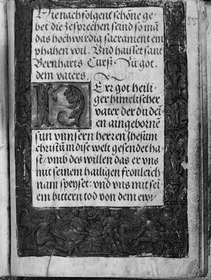 Hie nachfolgent schöne ge
bet die zesprechen seind so man
das hochwirdig sacrament ent
pfahen wil. Vnd hausset sant
Bernharts Cursz. Zu got
dem vaters.
Herr got heili
ger himelischer
vater der du dei
en aingebornē
sun vnnsern herren ihesum
christū in dise welt gesendet ha
st. vmb des willen das er vns
mit seinem hailigen fronleich
nam speyset. vnd vns mit sei
em bittern tod von dem ewi